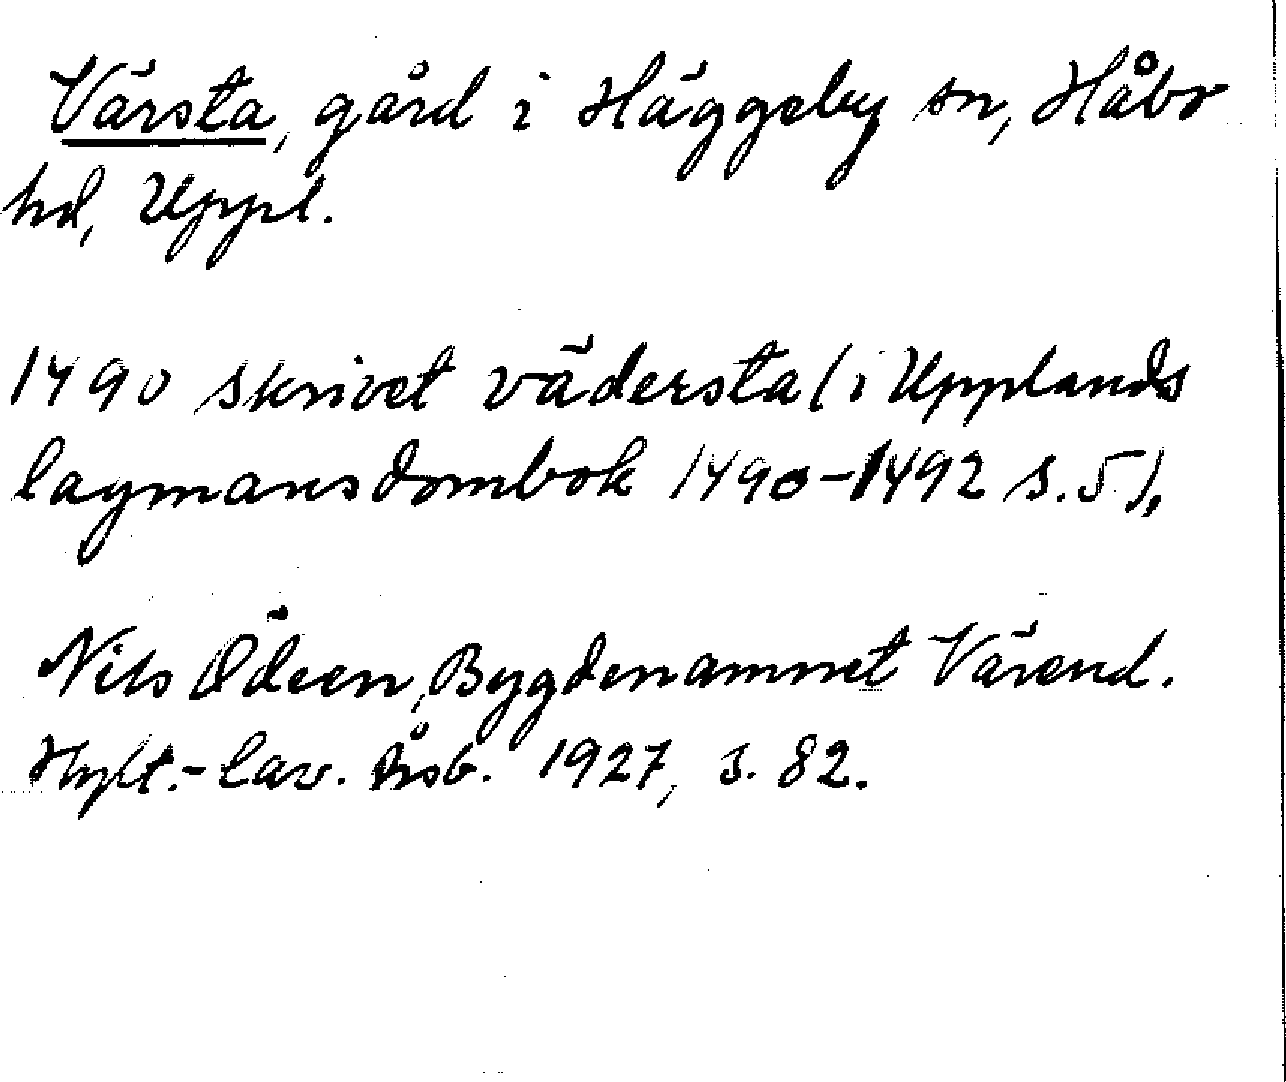 Värsta, gård i Häggeby sn, Håbo
hd, Uppl.
1490 skrivet vädersta (i Upplands
lagmansdombok 1490-1492 s. 5).
Nils Ödeen, Bygdenamnet Värend.
Hylt.-Cav. Årsb. 1927, s. 82.